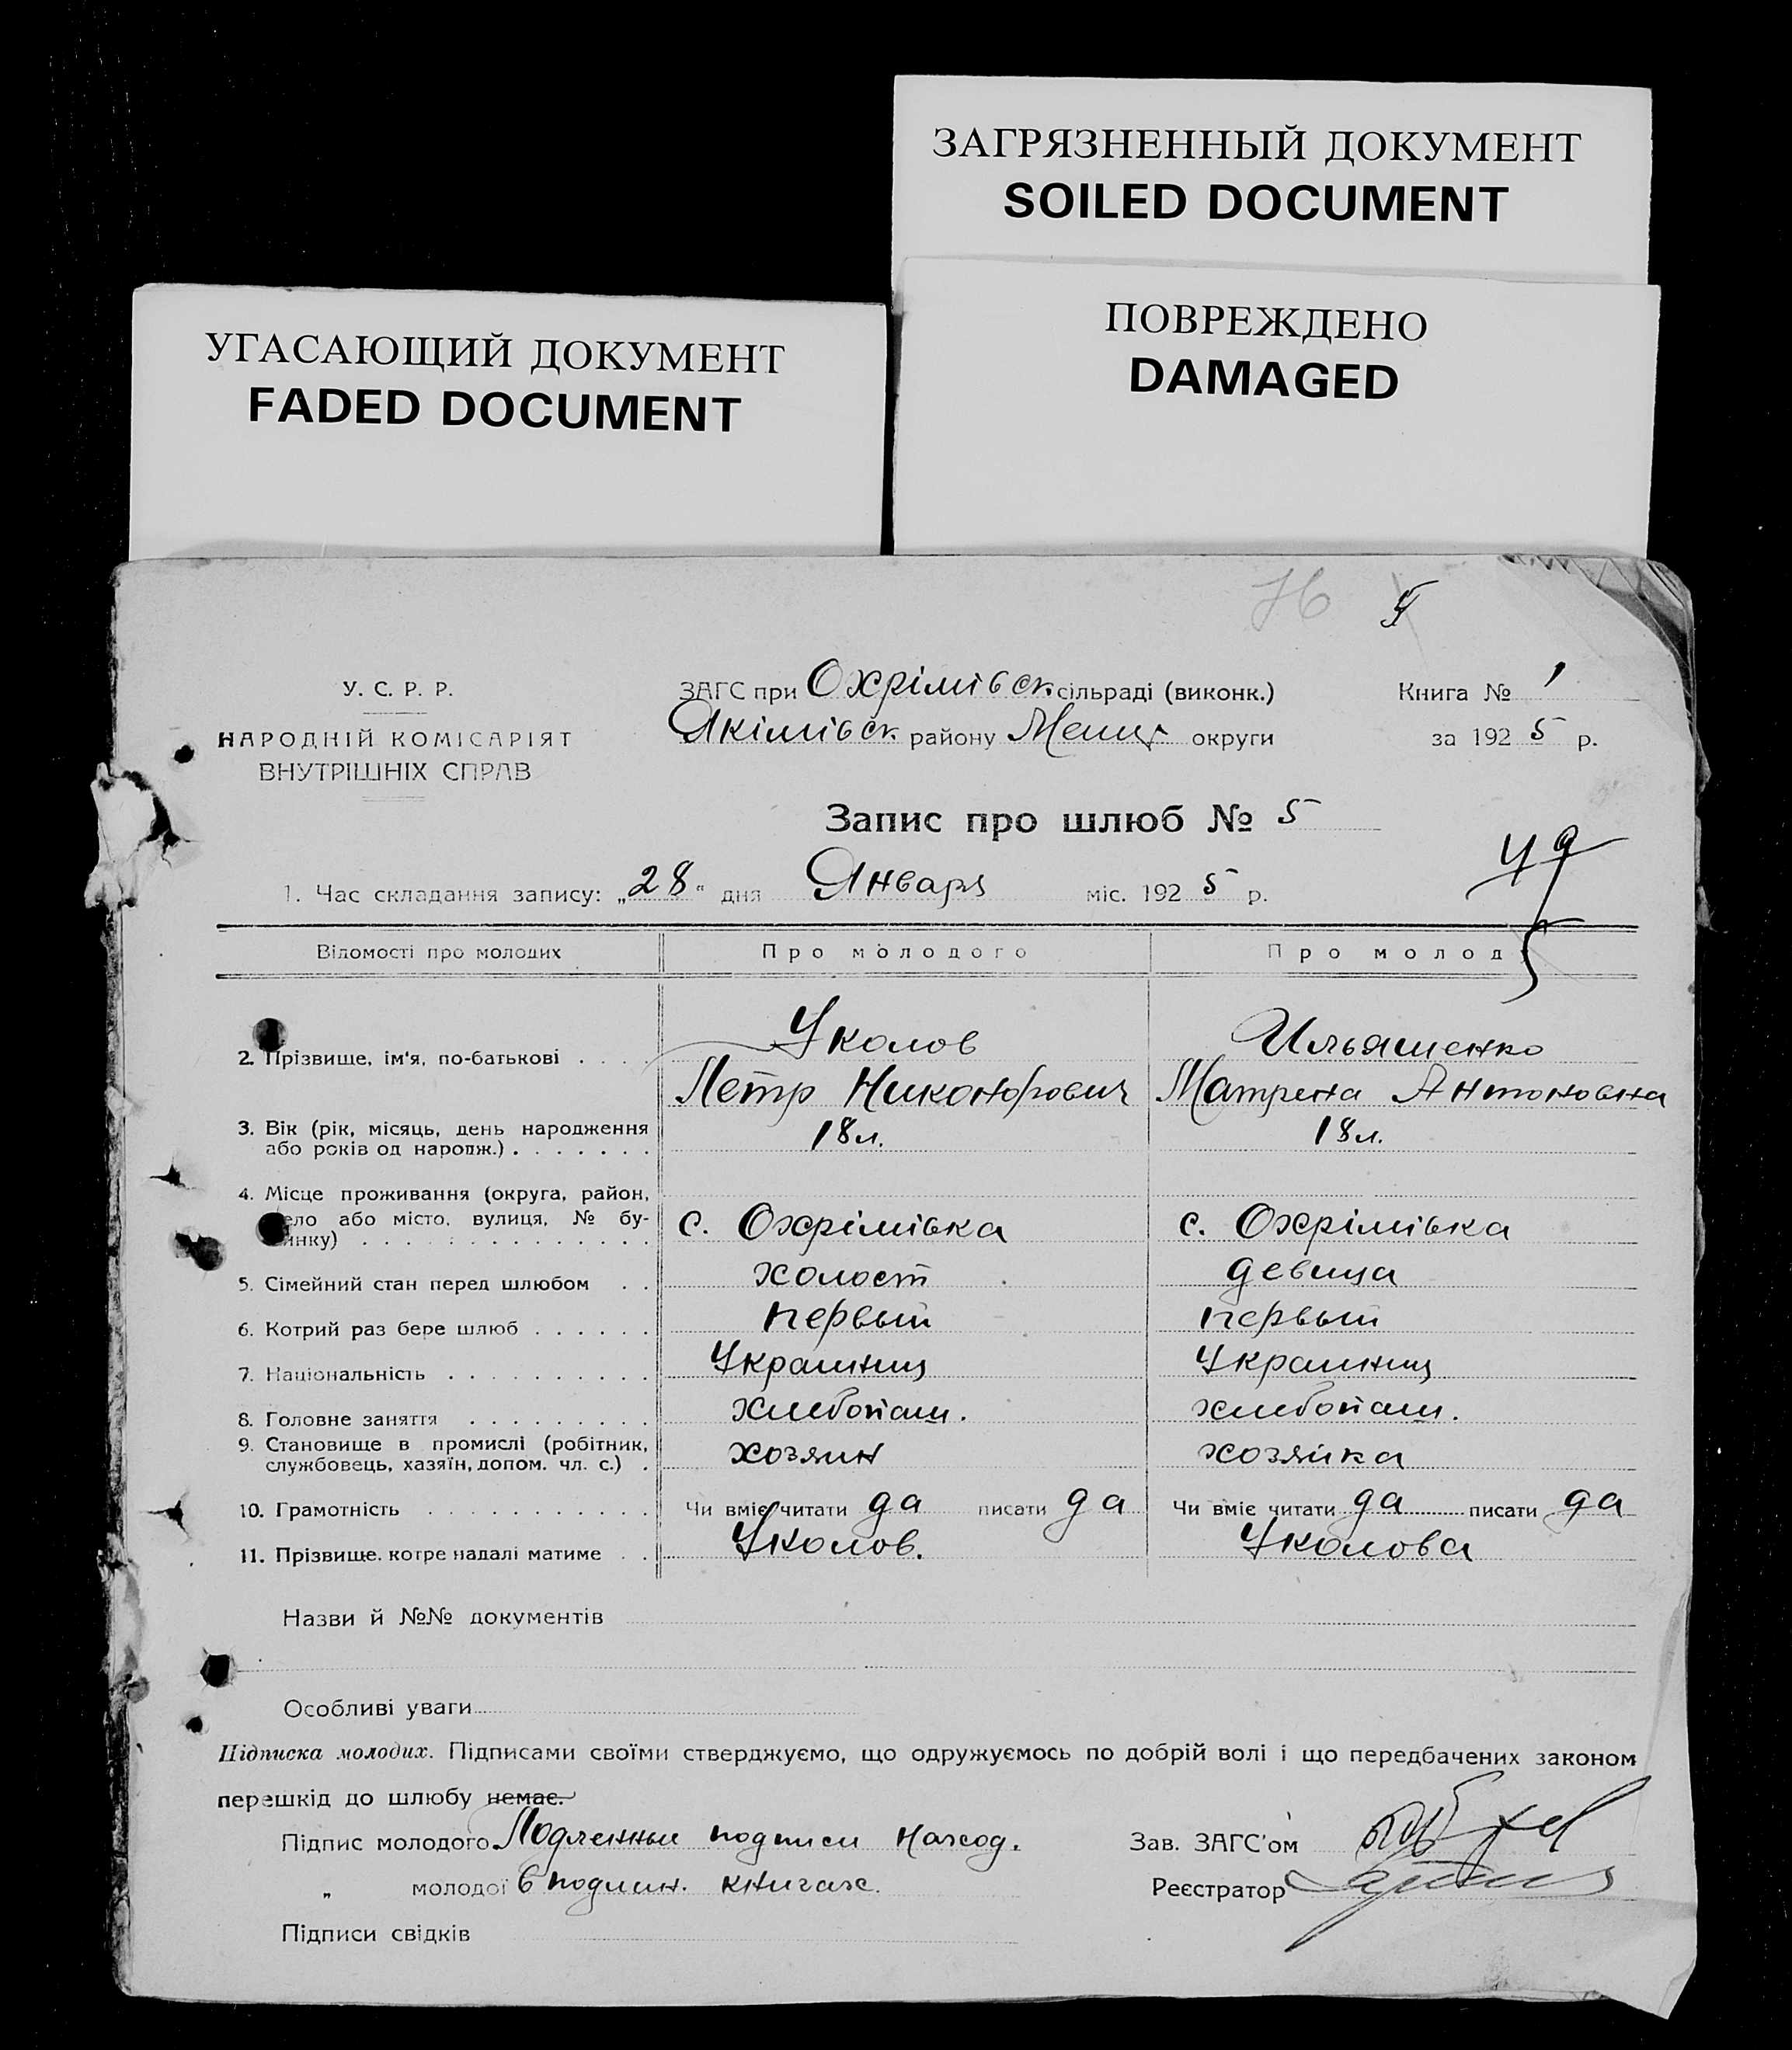 ЗАГРЯЗНЕННЫЙ ДОКУМЕНТ
SOILED DOCUMENT
УГАСАЮЩИЙ ДОКУМЕНТ
FADED DOCUMENT
ПОВРЕЖДЕНО
DAMAGED
У. С. Р. Р.
НАРОДНІЙ КОМІСАРІЯТ
ВНУТРІШНІХ СПРАВ
ЗАГС при Охрімівск сільраді (виконк.)
Якімівск району Меліт округи
Книга № 1
за 1925 р.
Запис про шлюб № 5
49
1. Час складання запису: „28“ дня Января міс. 1925 р.
Відомості про молодих Про молодого Про молоду
2. Прізвище, ім'я, по-батькові . . . . Уколов Ильяшенко
Петр Никонорович Матрена Антоновна
3. Вік (рік, місяць, день народження 18 л. 18 л.
або років од народж.) . . . . . . .
4. Місце проживання (округа, район,
село або місто, вулиця, № бу-
динку) . . . . . . . . . . . . . с. Охрімівка с. Охрімівка
5. Сімейний стан перед шлюбом . . холост девица
6. Котрий раз бере шлюб . . . . . . первый первый
7. Національність . . . . . . . . . . Украинц Украинц
8. Головне заняття . . . . . . . . . хлебопаш. хлебопаш.
9. Становище в промислі (робітник,
службовець, хазяїн, допом. чл. с.) . хозяин хозяйка
10. Грамотність . . . . . . . . . . . Чи вміє читати да писати да Чи вміє читати да писати да
11. Прізвище, котре надалі матиме . . Уколов. Уколова
Назви й №№ документів
Особливі уваги
Підписка молодих. Підписами своїми стверджуємо, що одружуємось по добрій волі і що передбачених законом
перешкід до шлюбу немає.
Підпис молодого Подленные подписи наход. Зав. ЗАГС'ом
„ молодої в подлин. книгах. Реєстратор
Підписи свідків